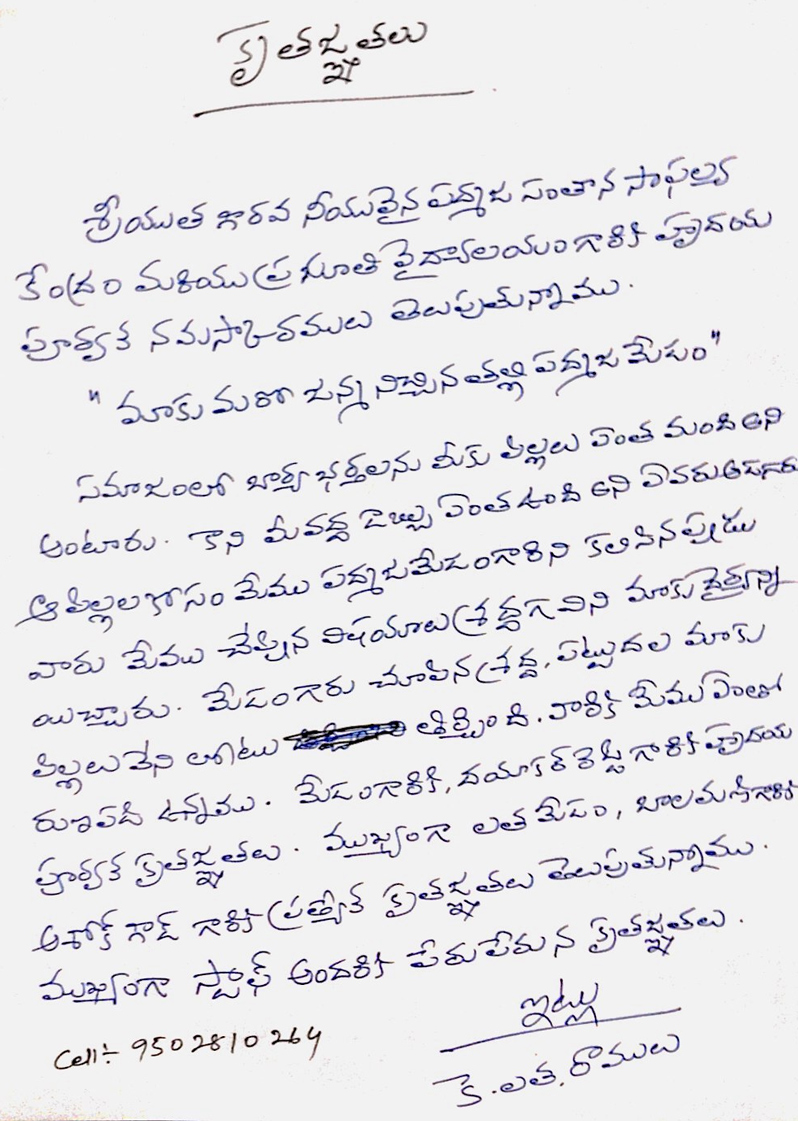 కృతజ్ఞతలు
శ్రీయుత గౌరవ నీయులైన పద్మజ సంతాన సాఫల్య
కేంద్రం మరియు ప్రభూతి వైద్యాలయం గారికి హృదయ
పూర్వక నమస్కారములు తెలుపుతున్నాము.
"మాకు మరో జన్మ నిచ్చిన తల్లి పద్మజ మేడం"
సమాజంలో బార్య భర్తలను మీకు పిల్లలు ఎంత మంది అని
అంటారు. కాని మీవద్ద డబ్బు ఎంత ఉంది అని ఎవరు అడగరు
ఆ పిల్లల కోసం మేము పద్మజ మేడంగారిని కలిసినప్పుడు
వారు మేము చెప్పిన విషయాలు శ్రద్దగా విని మాకు దైర్యాన్ని
యిచ్చారు. మేడంగారు చూపిన శ్రద్ద, పట్టుదల మాకు
పిల్లలు లేని లోటు తీర్చింది. వారికి మేము ఎంతో
రుణపడి ఉన్నాము. మేడంగారికి, దయాకర్ రెడ్డి గారికి హృదయ
పూర్వక కృతజ్ఞతలు. ముఖ్యంగా లత మేడం, బాలమణిగారికి
అశోక్ గౌడ్ గారికి ప్రత్యేక కృతజ్ఞతలు తెలుపుతున్నాము.
ముఖ్యంగా స్టాఫ్ అందరికి పేరు పేరు న కృతజ్ఞతలు.
ఇట్లు
Cell:- 9502810264
కె. లత. రాములు